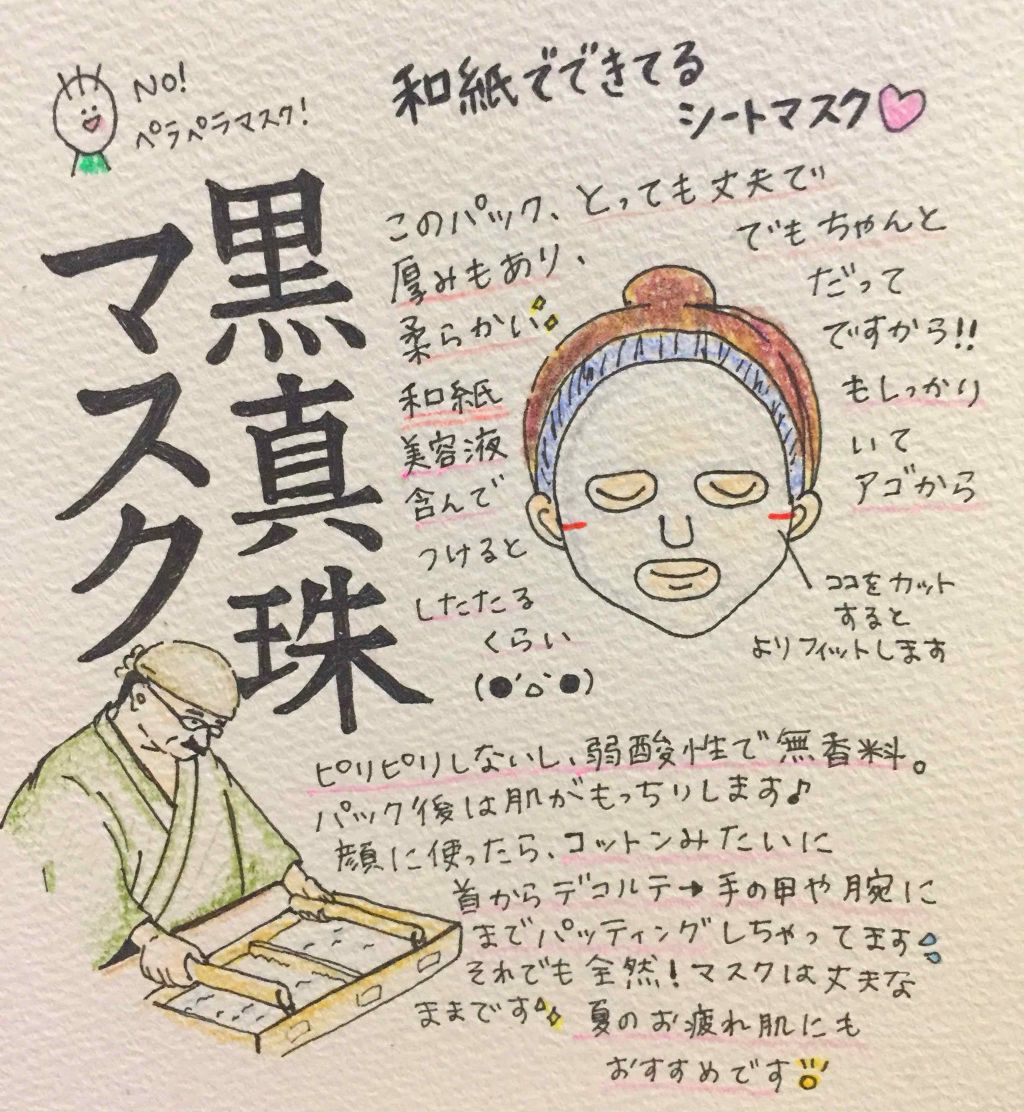 NO!
ペラペラマスク!
和紙でできてる
シートマスク♡
黒真珠
マスク
このパック、とっても丈夫で
厚みもあり、でもちゃんと
柔らかい だって
和紙 ですから!!
美容液 もしっかり
含んで いて
つけると アゴから
したたる
くらい
(●´△`●)
ココをカット
すると
よりフィットします
ピリピリしないし、弱酸性で無香料。
パック後は肌がもっちりします♪
顔に使ったら、コットンみたいに
首からデコルテ→手の甲や腕に
までパッティングしちゃってます
それでも全然!マスクは丈夫な
ままです
夏のお疲れ肌にも
おすすめです